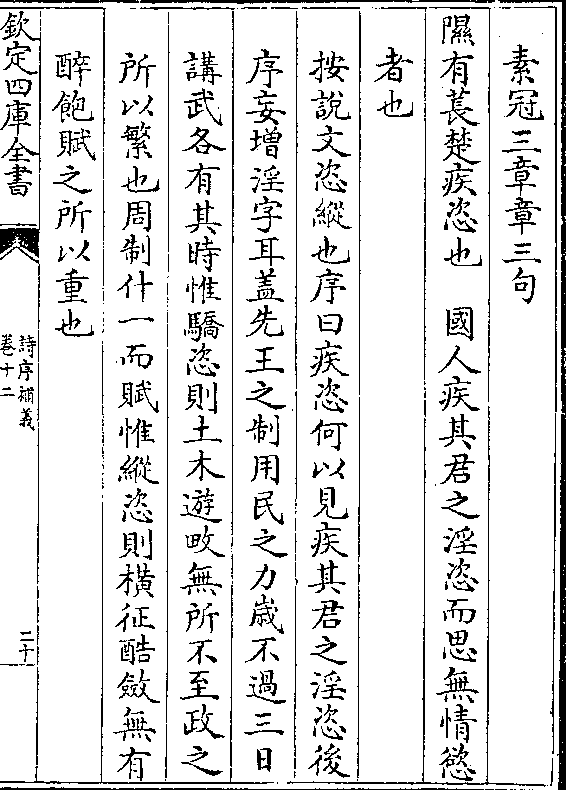 素冠三章章三句
隰有萇楚疾恣也　國人疾其君之淫恣而思無情慾
者也
按說文恣縱也序曰疾恣何以見疾其君之淫恣後
序妄增淫字耳蓋先王之制用民之力歲不過三日
講武各有其時惟驕恣則土木遊畋無所不至政之
所以繁也周制什一而賦惟縱恣則橫征酷斂無有
醉飽賦之所以重也
欽定四庫全書
詩序補義
卷十二
二十